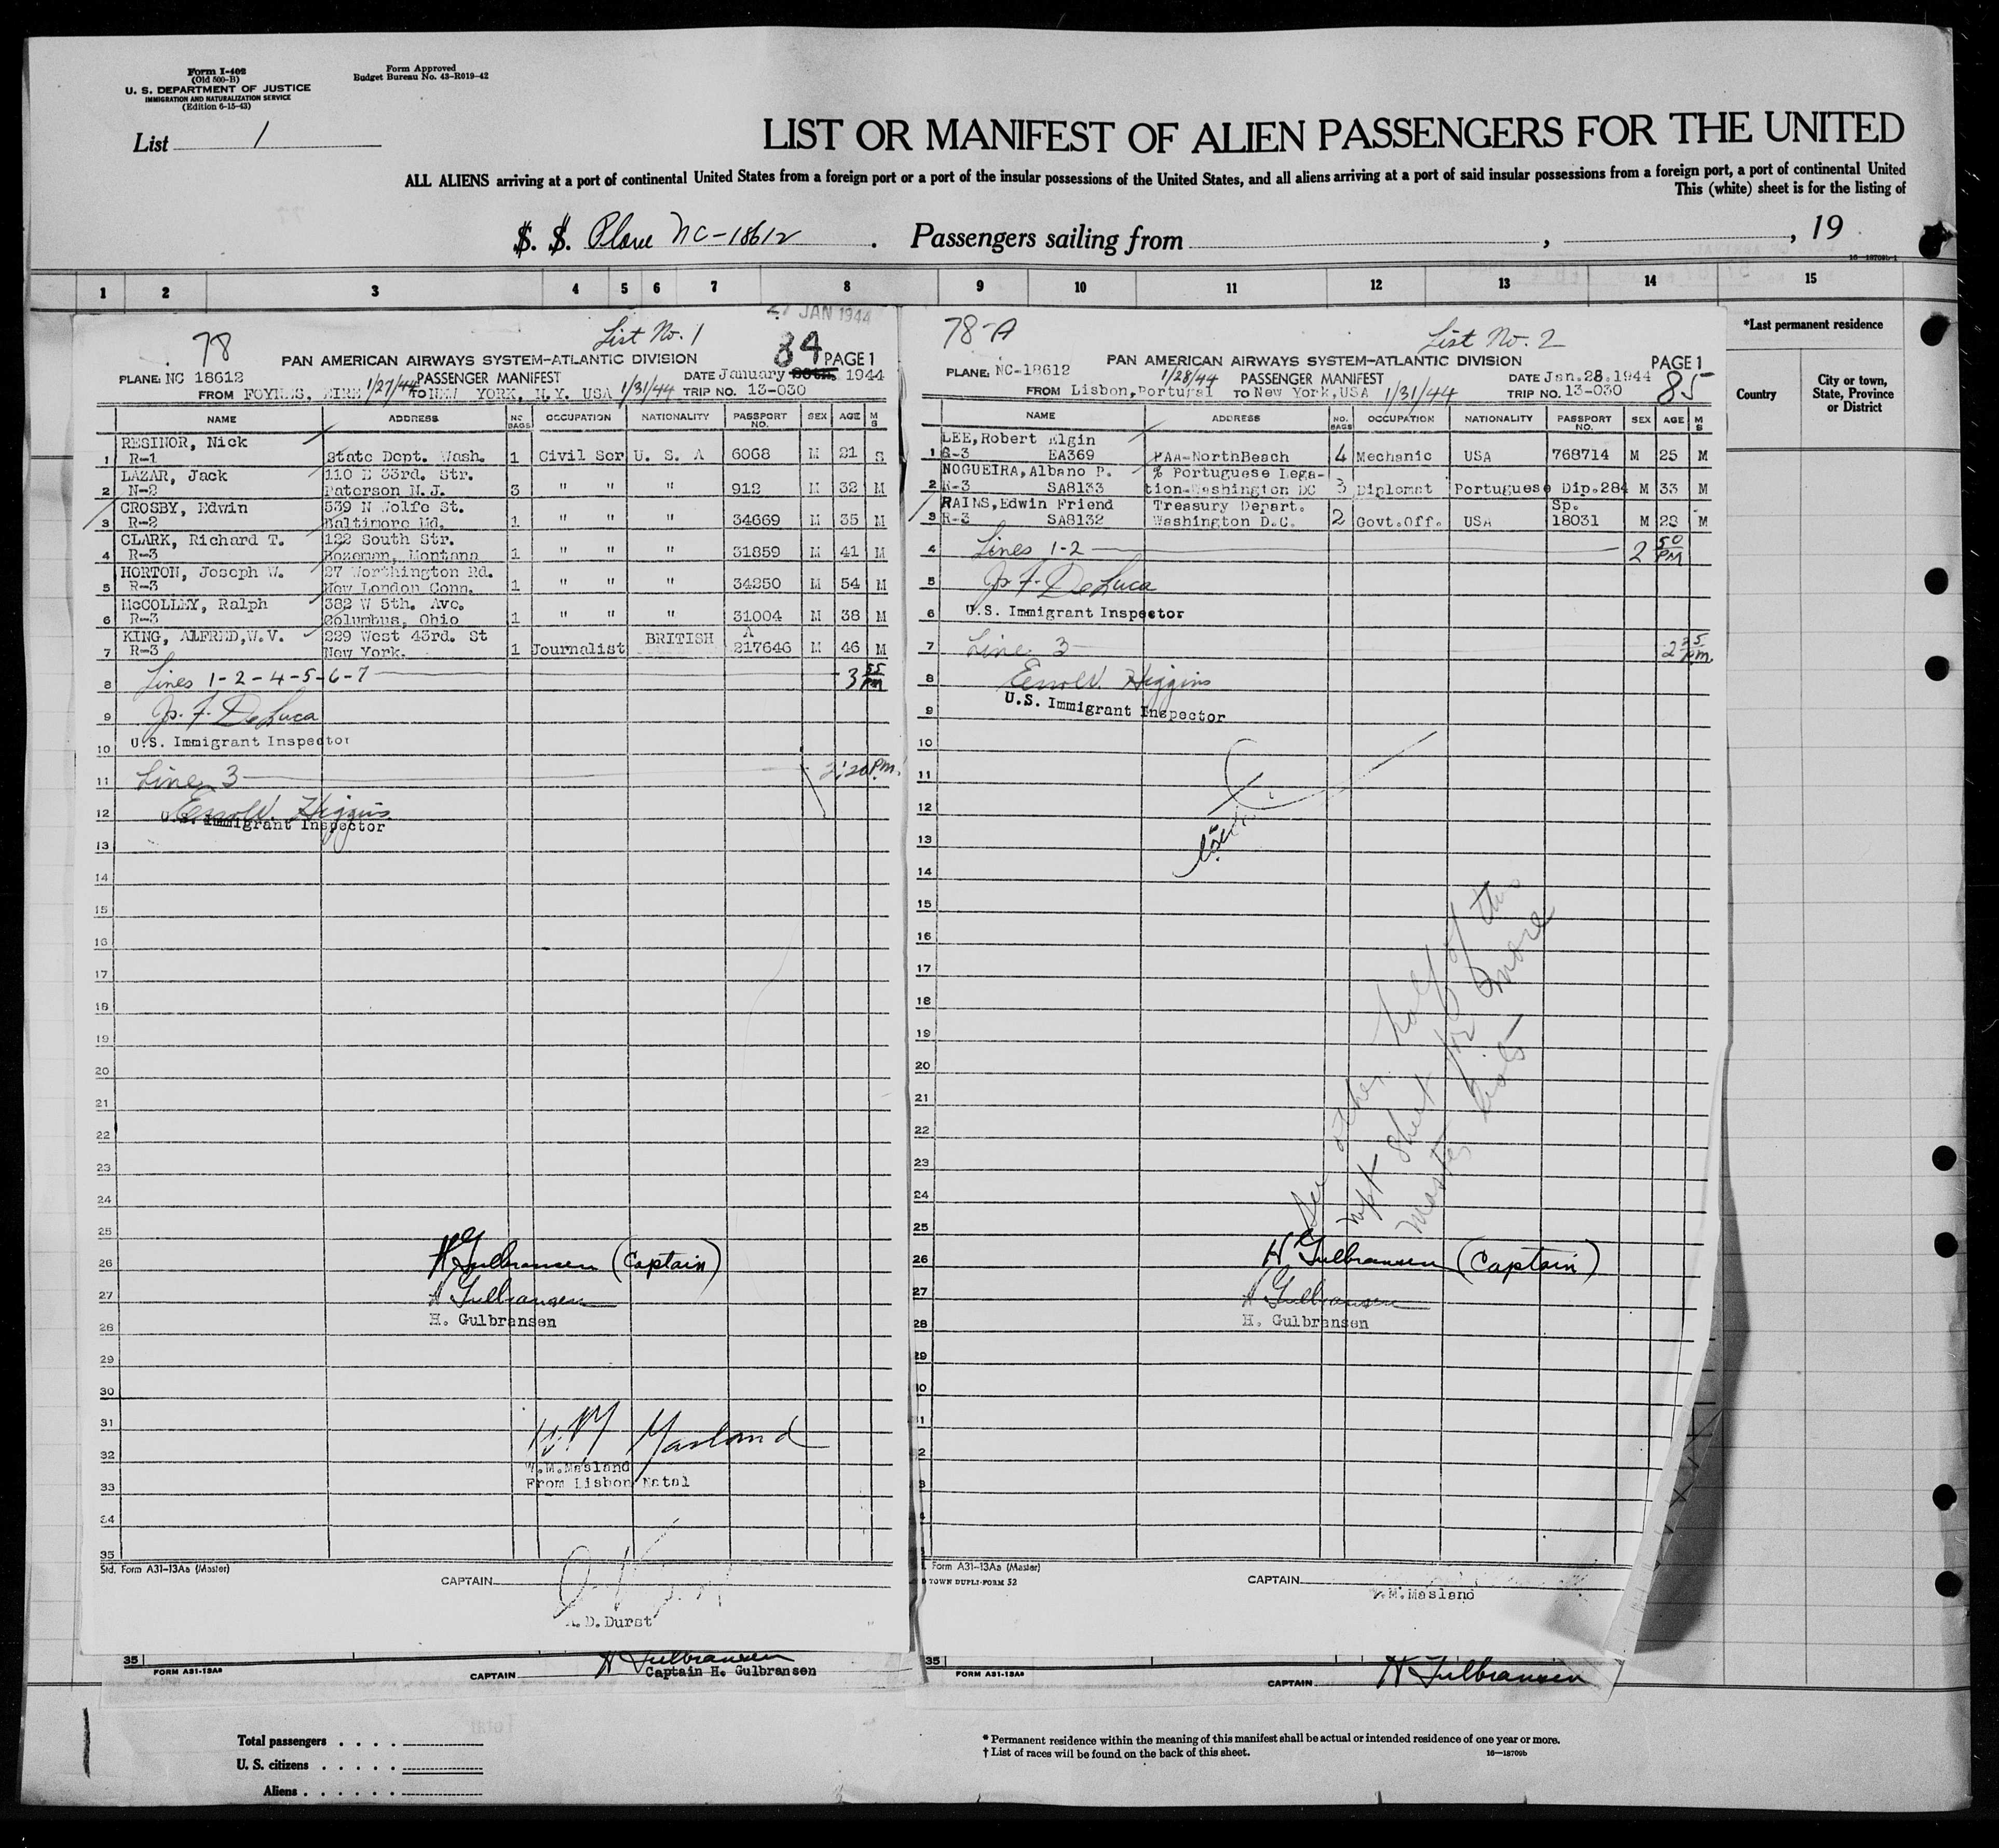 Form I-402
(Old 500-B)
U. S. DEPARTMENT OF JUSTICE
IMMIGRATION AND NATURALIZATION SERVICE
(Edition 6-15-43)
Form Approved
Budget Bureau No. 43-R019-42
List 1
LIST OR MANIFEST OF ALIEN PASSENGERS FOR THE UNITED
ALL ALIENS arriving at a port of continental United States from a foreign port or a port of the insular possessions of the United States, and all aliens arriving at a port of said insular possessions from a foreign port, a port of continental United
This (white) sheet is for the listing of
S. S. Plane NC-18612 . Passengers sailing from , , 19
16—18709b-1
1 2 3 4 5 6 7 8 9 10 11 12 13 14 15
*Last permanent residence
Country
City or town,
State, Province
or District
JAN 1944
78 List No. 1 84
PAN AMERICAN AIRWAYS SYSTEM—ATLANTIC DIVISION PAGE 1
PLANE: NC 18612 PASSENGER MANIFEST DATE January 1944
FROM FOYNES, EIRE 1/27/44 TO NEW YORK, N.Y. USA 1/31/44 TRIP NO. 13-030
NAME ADDRESS NO. BAGS OCCUPATION NATIONALITY PASSPORT NO. SEX AGE M S
RESINOR, Nick
1 R-1 State Dept. Wash. 1 Civil Ser U. S. A 6068 M 21 S
LAZAR, Jack 110 E 33rd. Str.
2 N-2 Paterson N.J. 3 " " " 912 M 32 M
CROSBY, Edwin 539 N Wolfe St.
3 R-2 Baltimore Md. 1 " " " 34669 M 35 M
CLARK, Richard T. 122 South Str.
4 R-3 Bozeman, Montana 1 " " " 31859 M 41 M
HORTON, Joseph W. 27 Worthington Rd.
5 R-3 New London Conn. 1 " " " 34250 M 54 M
McCOLLEY, Ralph 382 W 5th. Ave.
6 R-3 Columbus, Ohio 1 " " " 31004 M 38 M
KING, ALFRED,W.V. 229 West 43rd. St BRITISH A
7 R-3 New York. 1 Journalist 217646 M 46 M
8 Lines 1-2-4-5-6-7 3 55 PM
9 Js. F. DeLuca
10 U.S. Immigrant Inspector
11 Line 3 2:20 P.m.
12 Errol V. Higgins
U.S. Immigrant Inspector
13
14
15
16
17
18
19
20
21
22
23
24
25
26 H Gulbransen (Captain)
27 H Gulbransen
28 H. Gulbransen
29
30
31 W M Masland
32 W.M.Masland
33 From Lisbon Natal
34
35
Std. Form A31-13Aa (Master)
CAPTAIN
A.D.Durst
35
FORM A31-13Aa
CAPTAIN H Gulbransen
Captain H. Gulbransen
78-A List No. 2
PAN AMERICAN AIRWAYS SYSTEM—ATLANTIC DIVISION PAGE 1
PLANE: NC-18612 1/28/44 PASSENGER MANIFEST DATE Jan.28.1944
FROM Lisbon,Portugal TO New York,USA 1/31/44 TRIP NO. 13-030 85
NAME ADDRESS NO. BAGS OCCUPATION NATIONALITY PASSPORT NO. SEX AGE M S
LEE,Robert Elgin
1 R-3 EA369 PAA-NorthBeach 4 Mechanic USA 768714 M 25 M
NOGUEIRA,Albano P. % Portuguese Lega-
2 R-3 SA8133 tion-Washington DC 3 Diplomat Portuguese Dip.284 M 33 M
RAINS,Edwin Friend Treasury Depart. Sp.
3 R-3 SA8132 Washington D.C. 2 Govt.Off. USA 18031 M 28 M
4 Lines 1-2 2 50 PM
5 Js. F. DeLuca
6 U.S. Immigrant Inspector
7 Line 3 2 35 P.m.
8 Errol V. Higgins
9 U.S. Immigrant Inspector
10
11
12
13
14
15
16
17
18
19
20
21
22
23
24
See other half of this
mft sheet for more
master lists
25
26 H Gulbransen (Captain)
27 H Gulbransen
28 H. Gulbransen
29
Form A31-13Aa (Master)
TOWN DUPLI-FORM 52
CAPTAIN
W.M.Masland
35
FORM A31-13Aa
CAPTAIN H Gulbransen
Total passengers
U. S. citizens
Aliens
* Permanent residence within the meaning of this manifest shall be actual or intended residence of one year or more.
† List of races will be found on the back of this sheet.
16—18709b